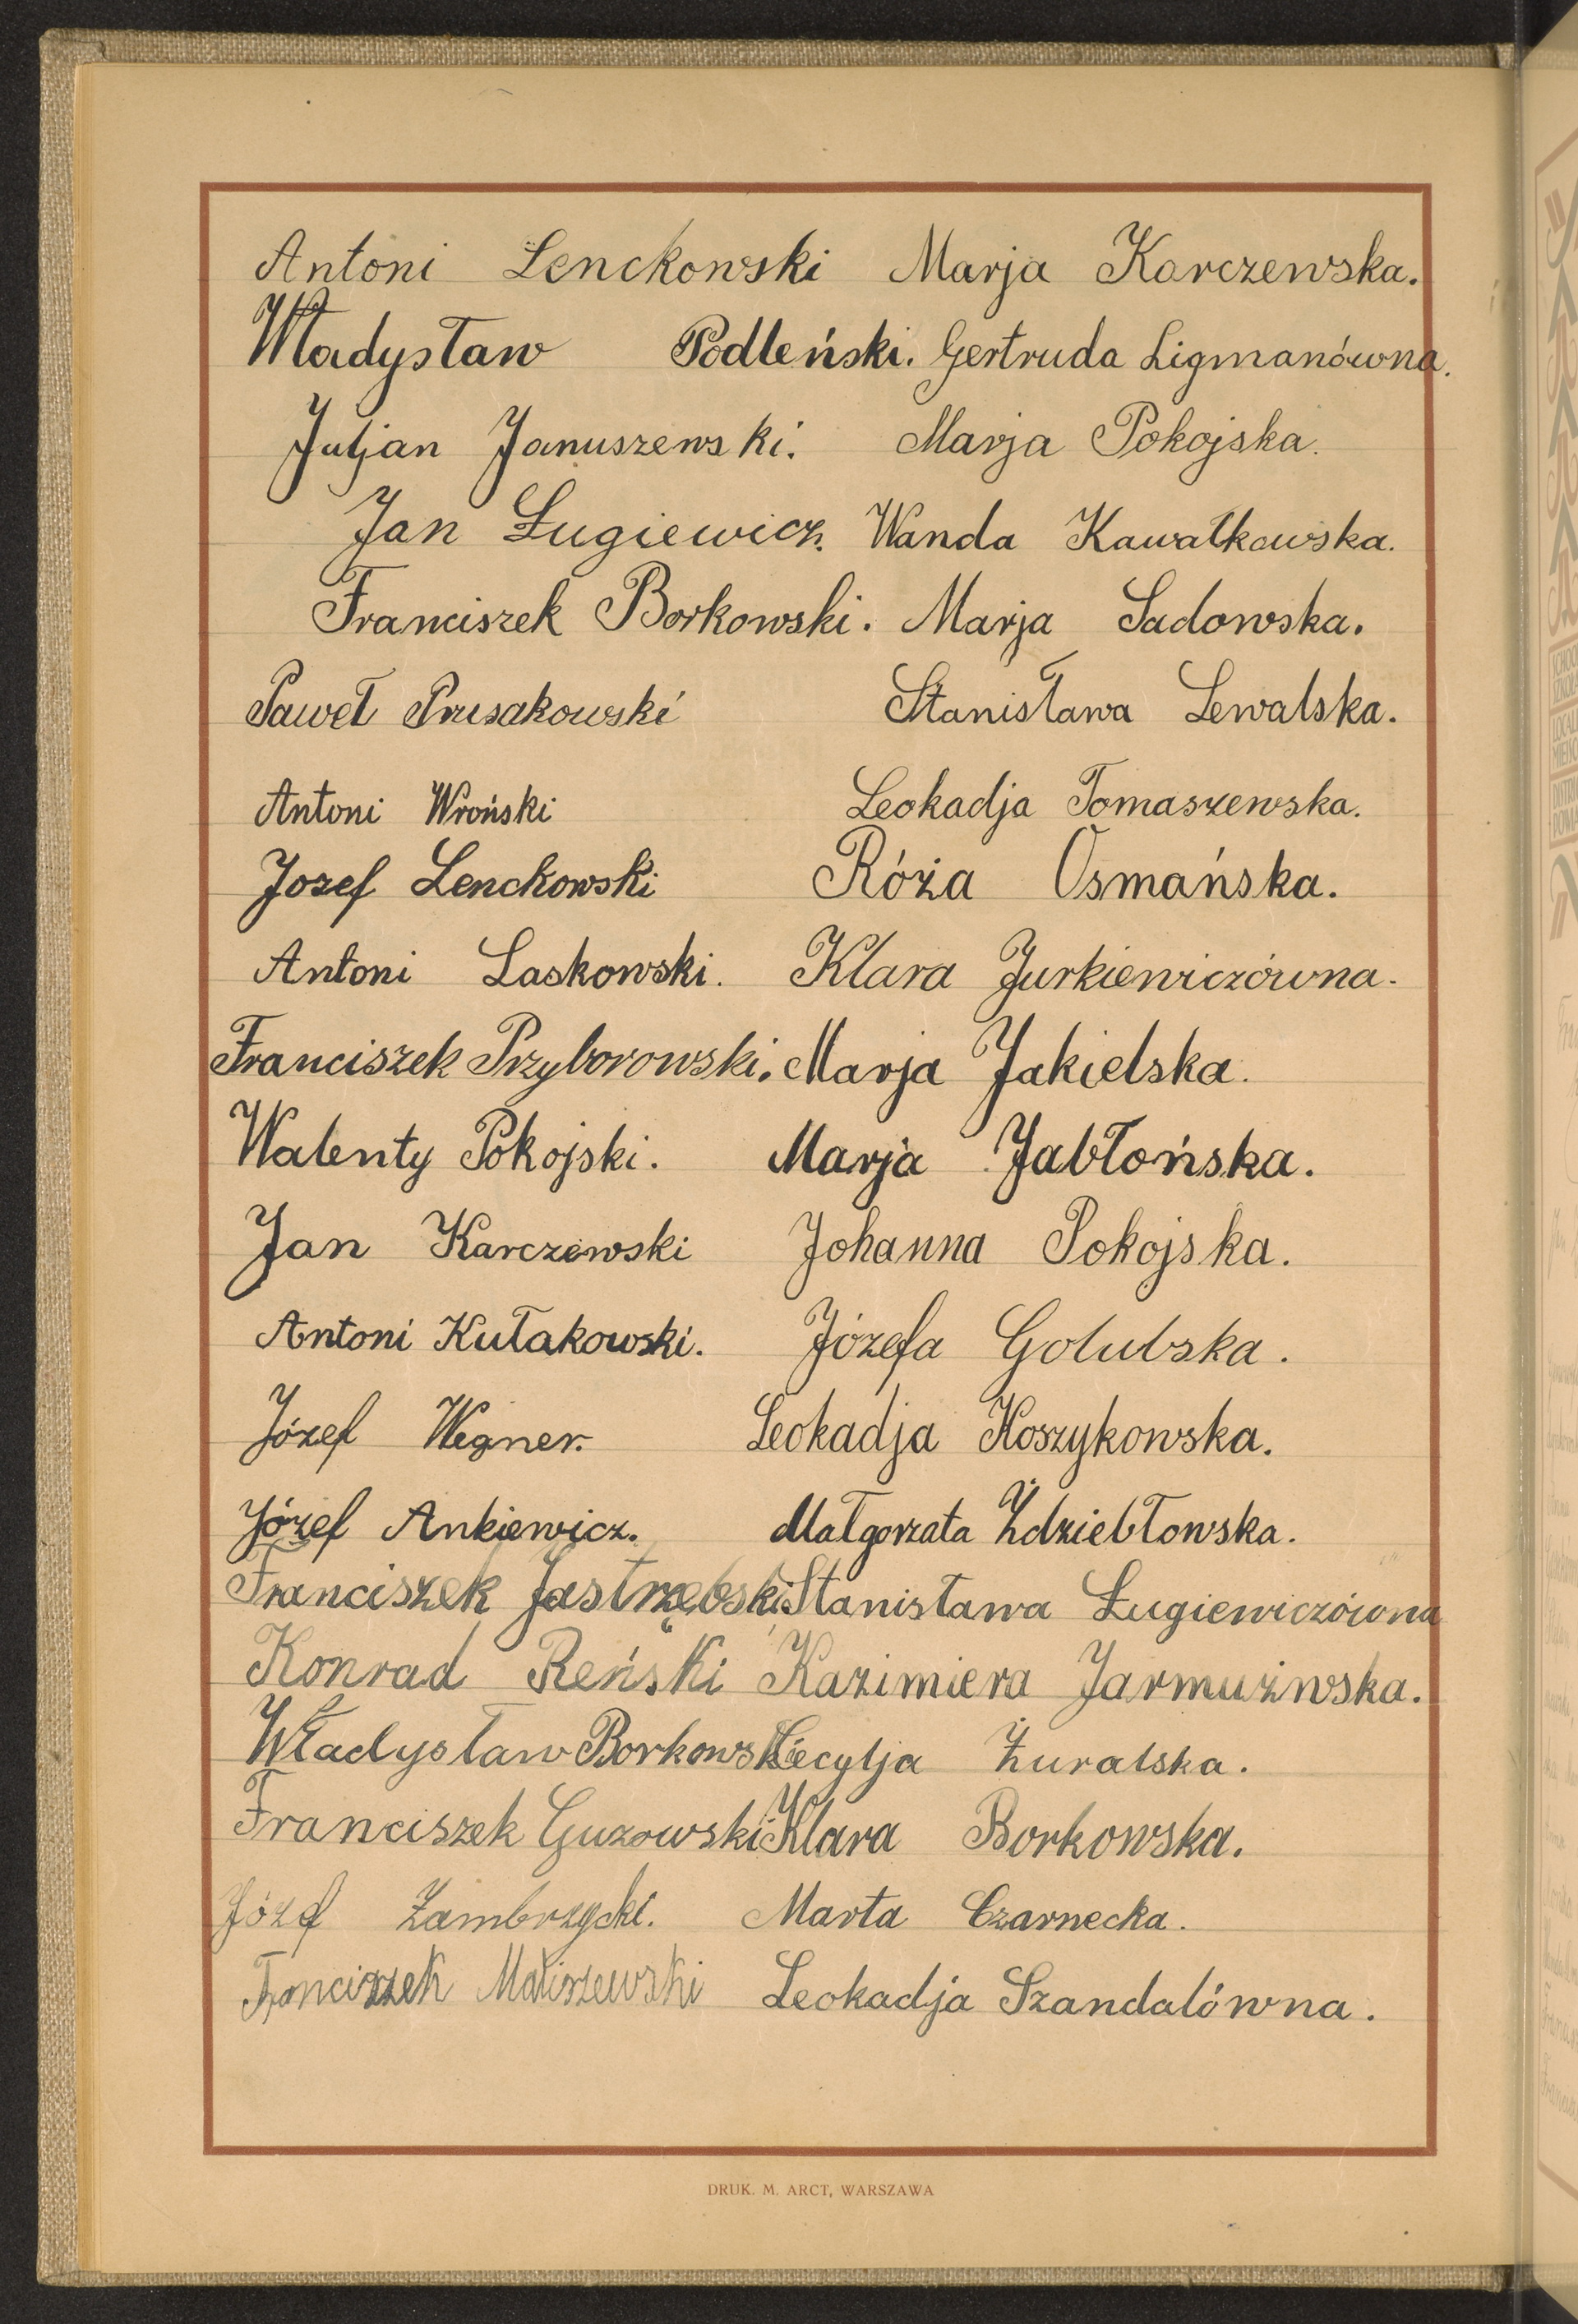 Antoni Lenckowski Marja Karczewska.
Władysław Podleński. Gertruda Ligmanówna.
Juljan Januszewski. Marja Pokojska.
Jan Ługiewicz. Wanda Kawałkowska.
Franciszek Borkowski. Marja Sadowska.
Paweł Prusakowski Stanisława Lewalska.
Antoni Wroński Leokadja Tomaszewska.
Jozef Lenckowski Róża Osmańska.
Antoni Laskowski. Klara Jurkiewiczówna.
Franciszek Przyborowski. Marja Jakielska.
Walenty Pokojski. Marja Jabłońska.
Jan Karczewski Johanna Pokojska.
Antoni Kułakowski. Józefa Golubska.
Józef Wegner. Leokadja Koszykowska.
Józef Ankiewicz. Małgorzata Żdziebłowska.
Franciszek Jastrzębski Stanisława Ługiewiczówna
Konrad Reński Kazimiera Jarmużwska.
Władysław Borkowski Cecylja Żuralska.
Franciszek Guzowski Klara Borkowska.
Józef Zambrzycki. Marta Czarnecka.
Franciszek Maliszewski Leokadja Szandalówna.
DRUK. M. ARCT, WARSZAWA